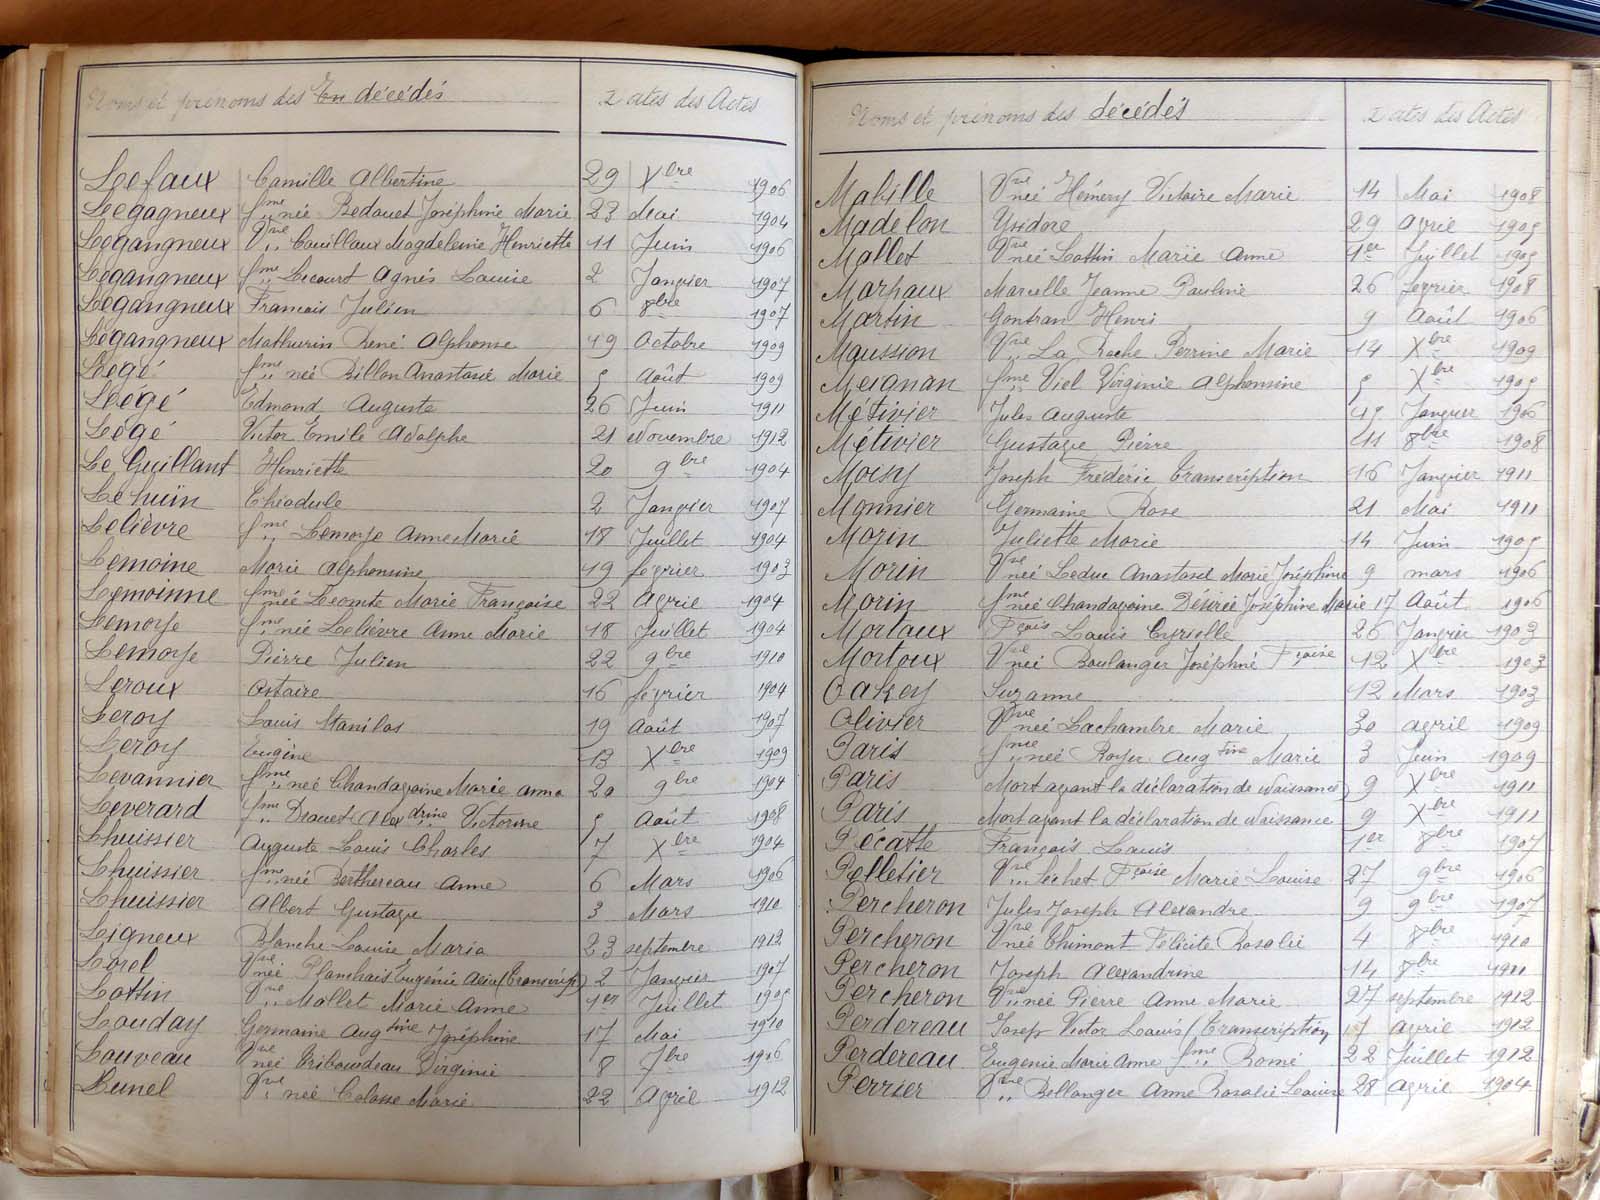 Noms et prénoms des décédés Dates des Actes
Lefaux Camille Albertine 29 Xbre 1906
Legagneux fme née Bedouet Joséphine Marie 23 Mai 1904
Legangneux Vve Couillaux Magdeleine Henriette 11 Juin 1906
Legangneux fme Lecourt Agnès Louise 2 Janvier 1907
Legangneux François Julien 6 8bre 1907
Legangneux Mathurin René Alphonse 19 Octobre 1909
Legé fme née Billon Anastasie Marie 5 Août 1909
Légé Edmond Auguste 26 Juin 1911
Legé Victor Emile Adolphe 21 Novembre 1912
Le Guillant Henriette 20 9bre 1904
Lehuïn Théodule 2 Janvier 1907
Lelièvre fme Lemoye Anne Marie 18 Juillet 1904
Lemoine Marie Alphonsine 19 février 1903
Lemoinne fme née Lecomte Marie Françoise 22 Avril 1904
Lemoye fme née Lelièvre Anne Marie 18 Juillet 1904
Lemoye Pierre Julien 22 9bre 1910
Leroux Astaire 16 février 1904
Leroy Louis Stanilas 19 Août 1907
Leroy Eugène 13 Xbre 1909
Levannier fme née Chandavoine Marie anna 20 9bre 1904
Leverard fme Drouet Alexdrine Victorine 5 Août 1908
Lhuissier Auguste Louis Charles 7 Xbre 1904
Lhuissier fme née Berthereau Anne 6 Mars 1906
Lhuissier Albert Gustave 3 Mars 1910
Ligneux Blanche Louise Maria 23 septembre 1912
Lorel Vve née Planchais Eugénie (Transcript) 2 Janvier 1907
Lottin Vve Mallet Marie Anne 1er Juillet 1905
Louday Germaine Augtine Joséphine 17 Mai 1910
Louveau Vve née Triboudeau Virginie 8 7bre 1906
Lunel Vve née Colasse Marie 22 Avril 1912
Noms et prénoms des décédés Dates des Actes
Mabille Vve née Hémery Victoire Marie 14 Mai 1908
Madelon Ysidore 29 avril 1905
Mallet Vve née Lottin Marie Anne 1er Juillet 1905
Marpaux Marcelle Jeanne Pauline 26 février 1908
Martin Gontran Henri 9 Août 1906
Maussion Vve La Roche Perrine Marie 14 Xbre 1909
Meignan fme Viel Virginie Alphonsine 5 Xbre 1905
Métivier Jules Auguste 15 Janvier 1906
Métivier Gustave Pierre 11 8bre 1908
Moisy Joseph Frédéric Transcription 16 Janvier 1911
Monnier Germaine Rose 21 Mai 1911
Morin Juliette Marie 14 Juin 1905
Morin Vve née Leduc Anastasie Marie Joséphine 9 mars 1906
Morin fme née Chandavoine Désirée Joséphine Marie 17 Août 1906
Mortaux Fçois Louis Cyrielle 26 Janvier 1903
Mortoux Vve née Boulanger Joséphine Fçoise 12 Xbre 1903
Oakey Suzanne 12 Mars 1903
Olivier Vve née Lachambre Marie 30 avril 1909
Paris fme née Royer Augtine Marie 3 Juin 1909
Paris Mort avant la déclaration de Naissance 9 Xbre 1911
Paris Mort avant la déclaration de Naissance 9 Xbre 1911
Pécatte François Louis 1er 8bre 1907
Pelletier Vve Sechet Fçoise Marie Louise 27 9bre 1906
Percheron Jules Joseph Alexandre 9 9bre 1907
Percheron Vve née Thimont Félicité Rosalie 4 8bre 1910
Percheron Joseph Alexandrine 14 8bre 1911
Percheron Vve née Pierre Anne Marie 27 septembre 1912
Perdereau Josep Victor Louis (Transcription avril 1912
Perdereau Eugénie Marie Anne fme Romé 22 Juillet 1912
Perrier Vve Bellanger Anne Rosalie Louise 28 avril 1904